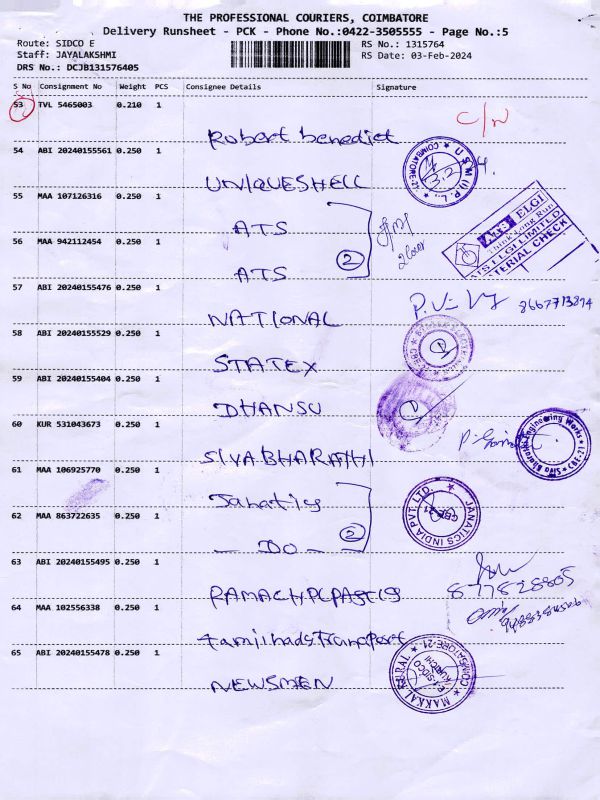 THE PROFESSIONAL COURIERS, COIMBATORE
Delivery Runsheet - PCK - Phone No.:0422-3505555 - Page No.:5
Route: SIDCO E
RS No.: 1315764
Staff: JAYALAKSHMI
RS Date: 03-Feb-2024
DRS No.: DCJB131576405
S No Consignment No Weight PCS Consignee Details Signature
53 TVL 5465003 0.210 1
C/N
Robert benedict
54 ABI 20240155561 0.250 1
UNIQUESHELL
55 MAA 107126316 0.250 1
ATS
56 MAA 942112454 0.250 1
ATS
2
ELGI
57 ABI 20240155476 0.250 1
NATIONAL
8667713894
58 ABI 20240155529 0.250 1
STATEX
59 ABI 20240155404 0.250 1
DHANSU
60 KUR 531043673 0.250 1
SIVABHARATHI
Siva Bharathi Engineering Works
CBE-21
61 MAA 106925770 0.250 1
Janatics
JANATICS INDIA PVT. LTD.
62 MAA 863722635 0.250 1
DO
2
63 ABI 20240155495 0.250 1
64 MAA 102556338 0.250 1
65 ABI 20240155478 0.250 1
NEWSMEN
MAKKAL KURAL